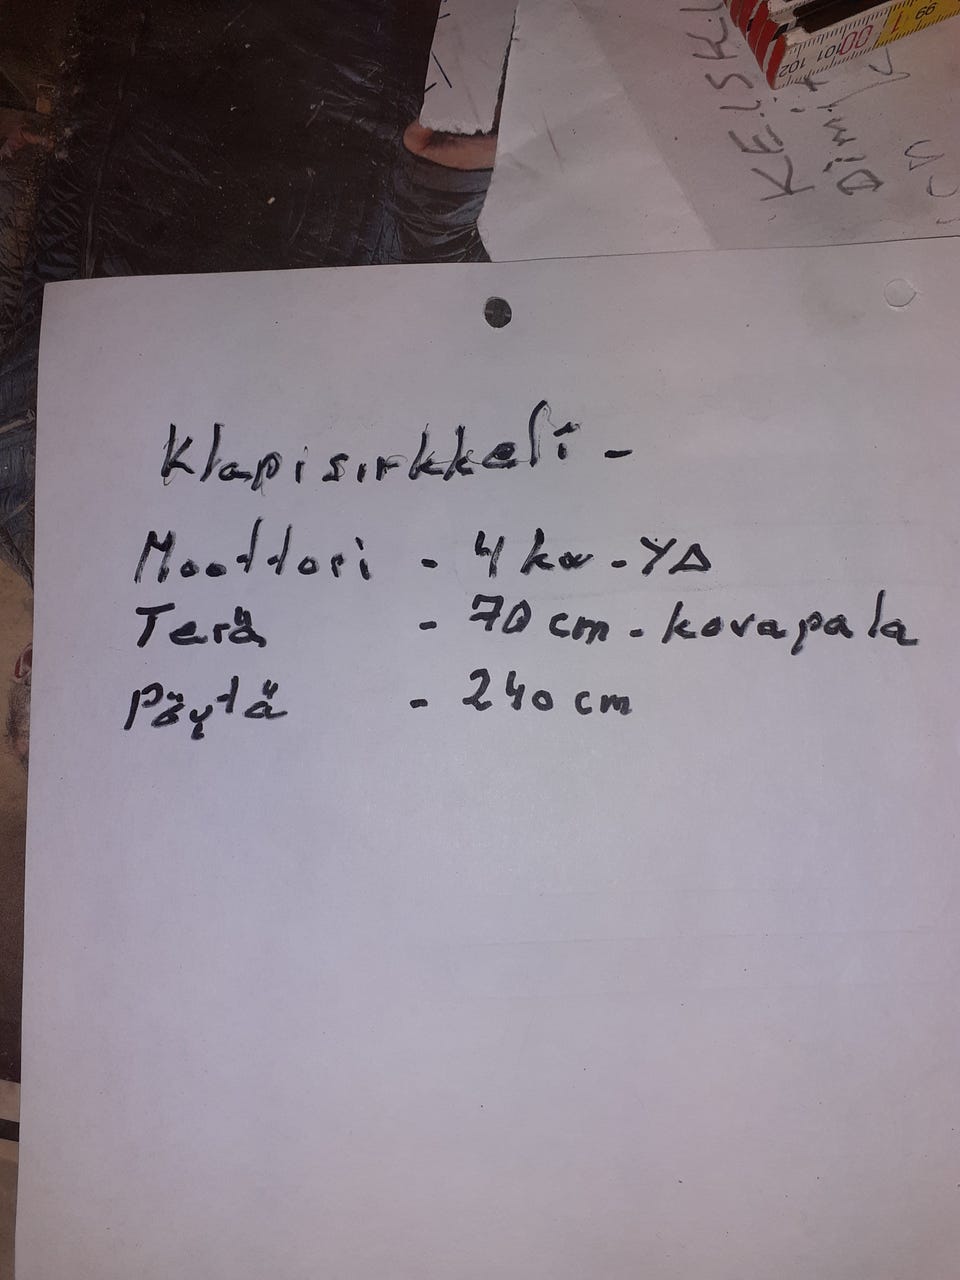 KEISKI
102 101 100 99
Klapisirkkeli -
Moottori - 4 kw - YΔ
Terä - 70 cm - kovapala
Pöytä - 240 cm